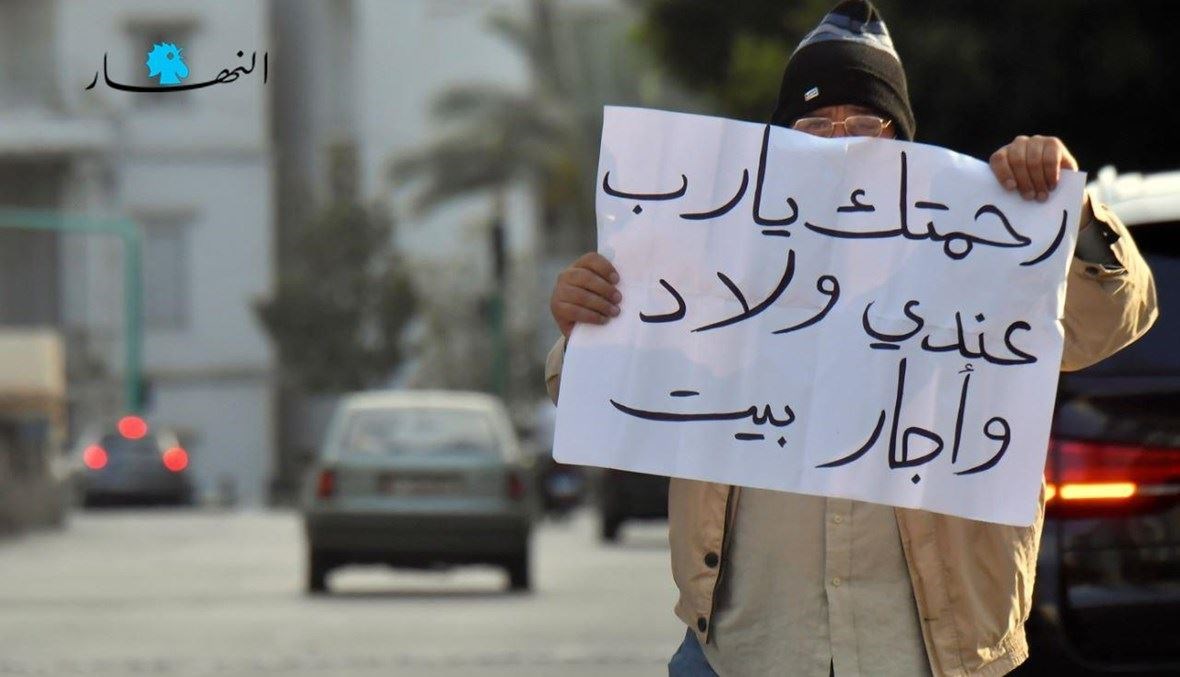 النهار
رحمتك يا رب
عندي ولاد
وأجار بيت